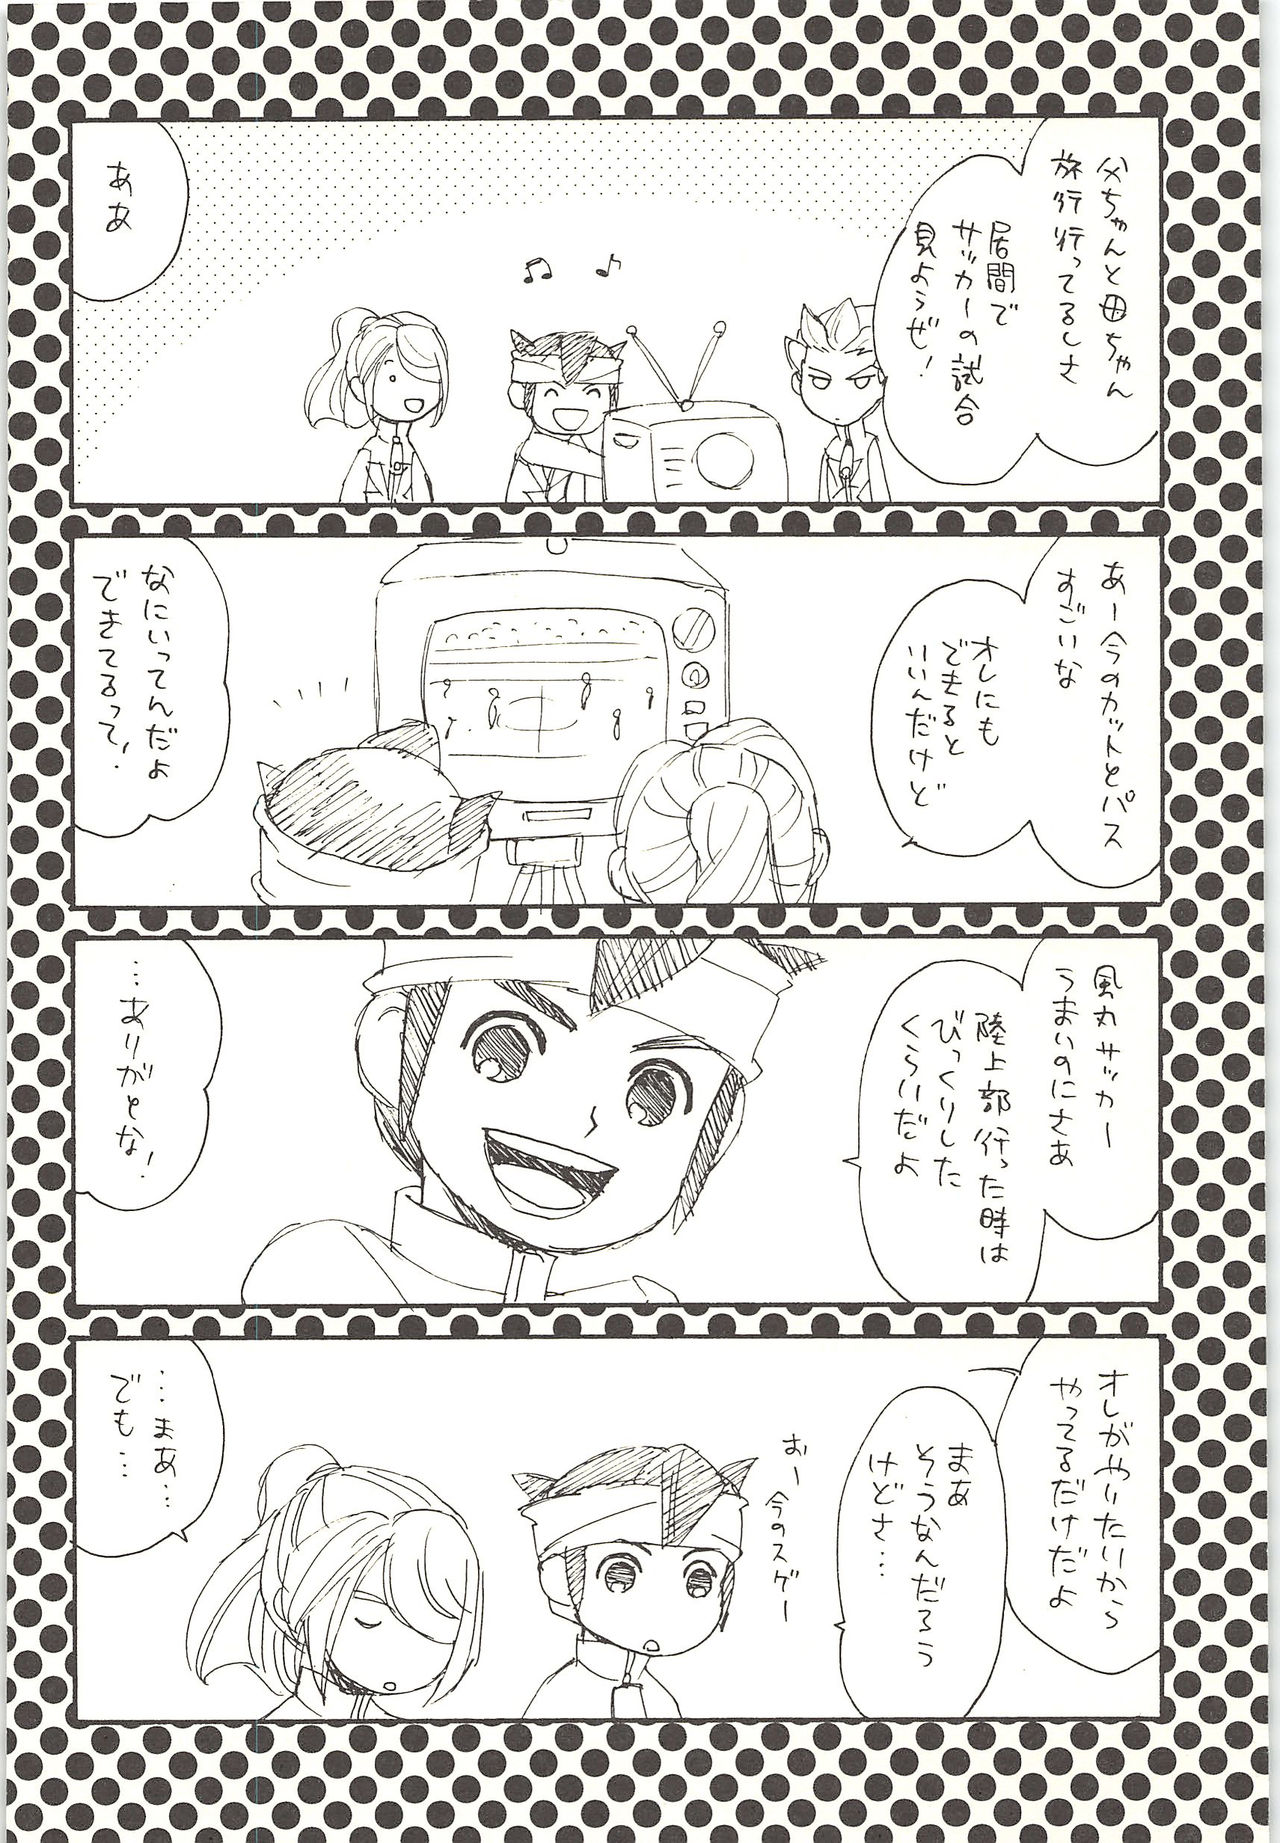 父ちゃんと母ちゃん
旅行行ってるしさ
居間で
サッカーの試合
見ようぜ!
ああ
あー今のカットとパス
すごいな
オレにも
できると
いいんだけど
なにいってんだよ
できてるって!
風丸サッカー
うまいのにさあ
陸上部行った時は
びっくりした
くらいだよ
…ありがとな!
オレがやりたいから
やってるだけだよ
まあ
そうなんだろう
けどさ…
おー今のスゲー
…まあ…
でも…